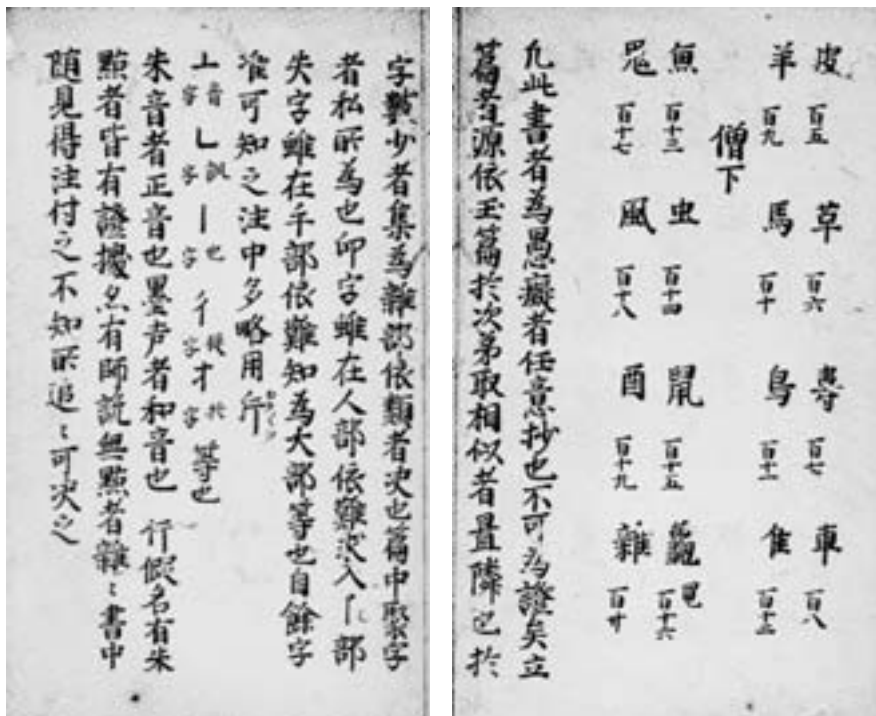 皮 百五 革 百六 韋 百七 車 百八
羊 百九 馬 百十 鳥 百十一 隹 百十二
僧下
魚 百十三 虫 百十四 鼠 百十五 龜 黽 百十六
鬼 百十七 風 百十八 酉 百十九 雜 百廿
凡此書者為愚癡者任意抄也不可為證矣立
篇者源依玉篇於次第取相似者置隣也於
字數少者集為雜部依類者决也篇中聚字
者私所為也仰字雖在人部依難决入部
失字雖在手部依難知為大部等也自餘字
准可知之注中多略用
亠音字 乚訓字 丨也字 彳字 才於字 等也
朱音者正音也墨声者和音也 假名有朱
點者皆有證據亦有師説無點者雜〻書中
隨見得注付之不知所追〻可决之